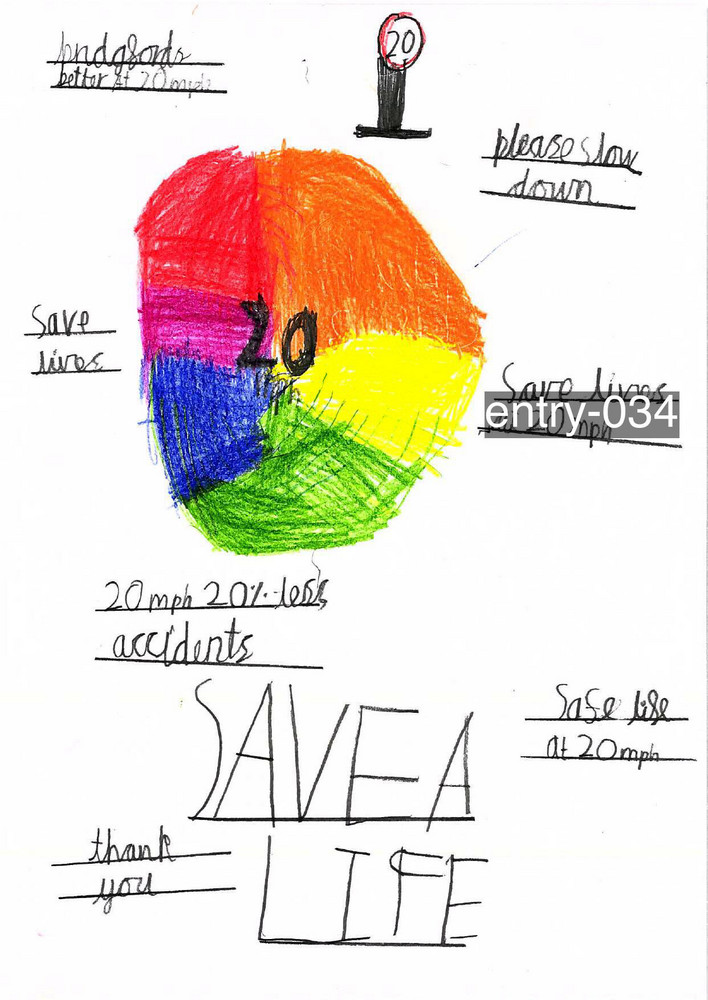 20
better at 20 mph
please slow
down
Save
lives
20
mph
Save lives
entry-034
20 mph
20 mph 20% less
accidents
SAVE A
LIFE
Safe life
at 20 mph
thank
you